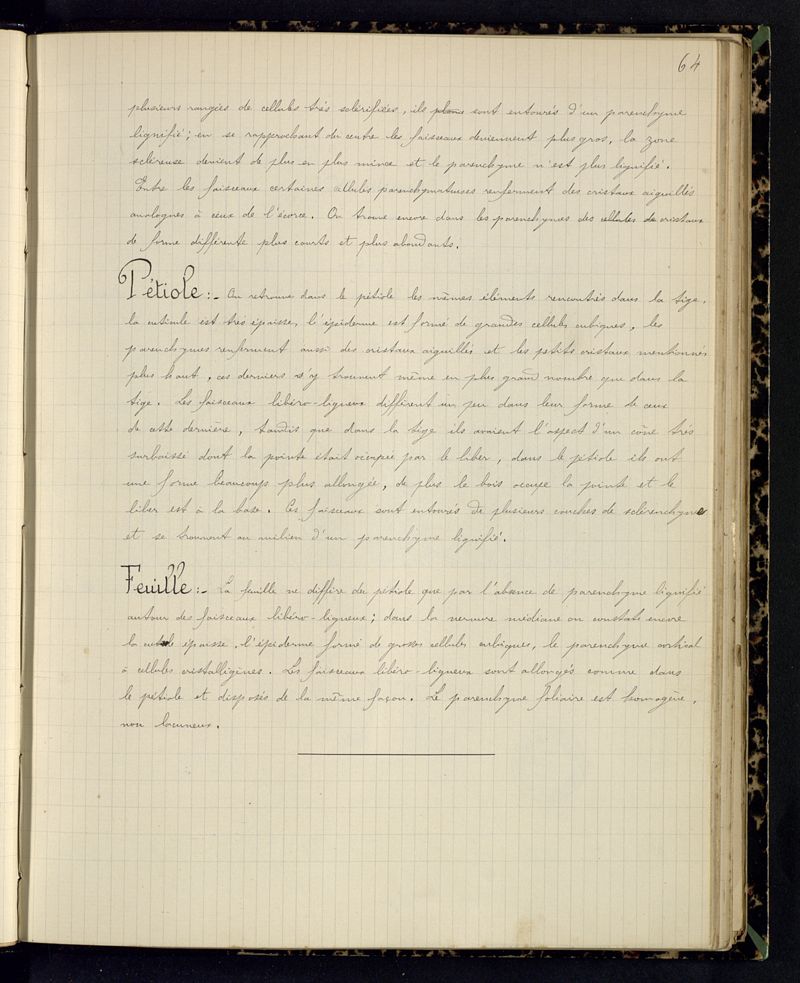 64
plusieurs rangées de cellules très sclérifiées, ils sont entourés d'un parenchyme
lignifié; en se rapprochant du centre les faisceaux deviennent plus gros, la zone
scléreuse devient de plus en plus mince et le parenchyme n'est plus lignifié.
Entre les faisceaux certaines cellules parenchymateuses renferment des cristaux aiguillés
analogues à ceux de l'écorce. On trouve encore dans les parenchymes des cellules de cristaux
de forme différente plus courts et plus abondants.
Pétiole:- On retrouve dans le pétiole les mêmes éléments rencontrés dans la tige.
la cuticule est très épaisse, l'épiderme est formé de grandes cellules cubiques, les
parenchymes renferment aussi des cristaux aiguillés et les petits cristaux mentionnés
plus haut, ces derniers s'y trouvent même en plus grand nombre que dans la
tige. Les faisceaux libéro-ligneux diffèrent un peu dans leur forme de ceux
de cette dernière, tandis que dans la tige ils avaient l'aspect d'un cône très
surbaissé dont la pointe était occupée par le liber, dans le pétiole ils ont
une forme beaucoup plus allongée, de plus le bois occupe la pointe et le
liber est à la base. Ces faisceaux sont entourés de plusieurs couches de sclérenchyme
et se trouvent au milieu d'un parenchyme lignifié.
Feuille:- La feuille ne diffère du pétiole que par l'absence de parenchyme lignifié
autour des faisceaux libéro-ligneux; dans la nervure médiane on constate encore
la cuticule épaisse, l'épiderme formé de grosses cellules cubiques, le parenchyme cortical
à cellules cristalligènes. Les faisceaux libéro-ligneux sont allongés comme dans
le pétiole et disposés de la même façon. Le parenchyme foliaire est homogène,
non lacuneux.